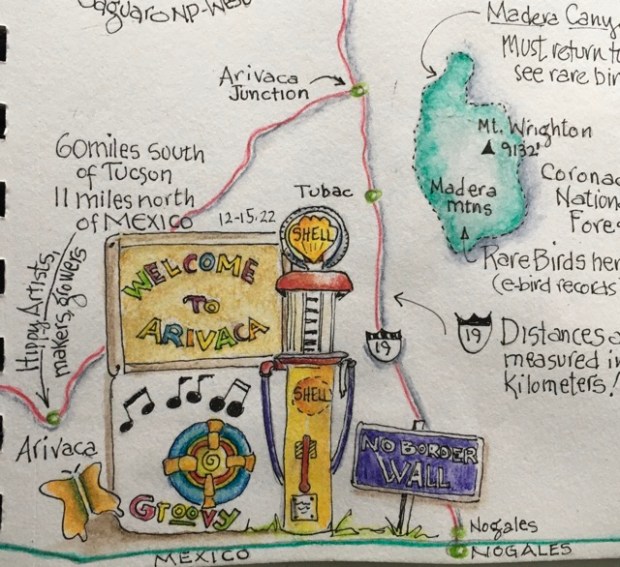 Saguaro NP-West
Madera Cany
Must return t
see rare bir
Arivaca
Junction
Mt. Wrighton
9132'
60 miles south
of Tucson
11 miles north
of MEXICO
12-15.22
Tubac
Madera
mtns
Corona
Nation
Fore
SHELL
WELCOME
TO
ARIVACA
Rare Birds her
(e-bird records
Hippy Artists,
makers, growers
19
19
Distances a
measured in
Kilometers!
SHELL
Arivaca
NO BORDER
WALL
GROOVY
Nogales
NOGALES
MEXICO